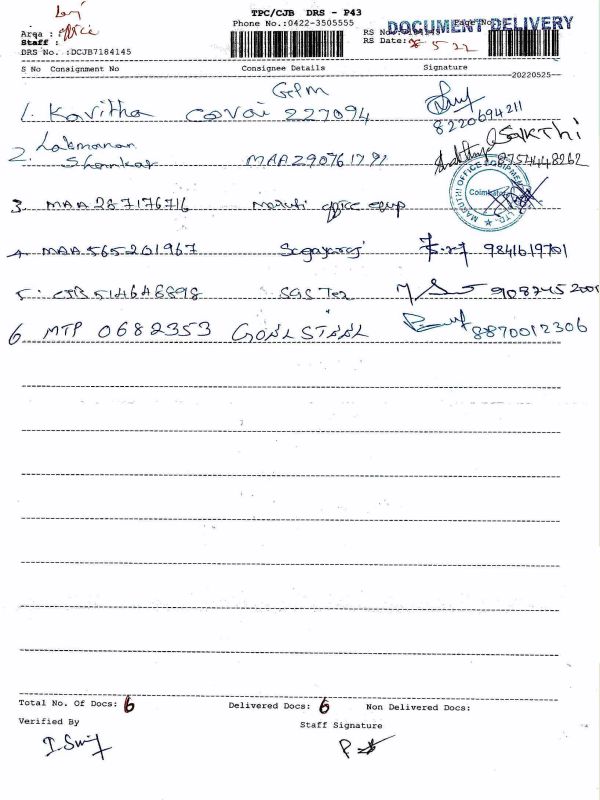 TPC/CJB DRS - P43
Phone No.:0422-3505555
DOCUMENT DELIVERY
Page No
Area : office
RS No.
Staff :
RS Date: 5 22
DRS No. :DCJB7184145
S No Consignment No Consignee Details Signature
20220525
GPM
1. Kavitha covai 227094
8220694211
SAKThi
2. Lakmanan
Shankar MAA290761791 8754448262
MARUTHI OFFICE EQUIPMENT
Coimbatore
LTD.
3 MAA 287176716 Maruti office equp
4 MAA 565201967 Sagayaraj 9841619701
5. CJB5146A8898 SGS Tex
6 MTP 0682353 GOAL STAAL 8870012306
Total No. Of Docs: 6 Delivered Docs: 6 Non Delivered Docs:
Verified By
Staff Signature